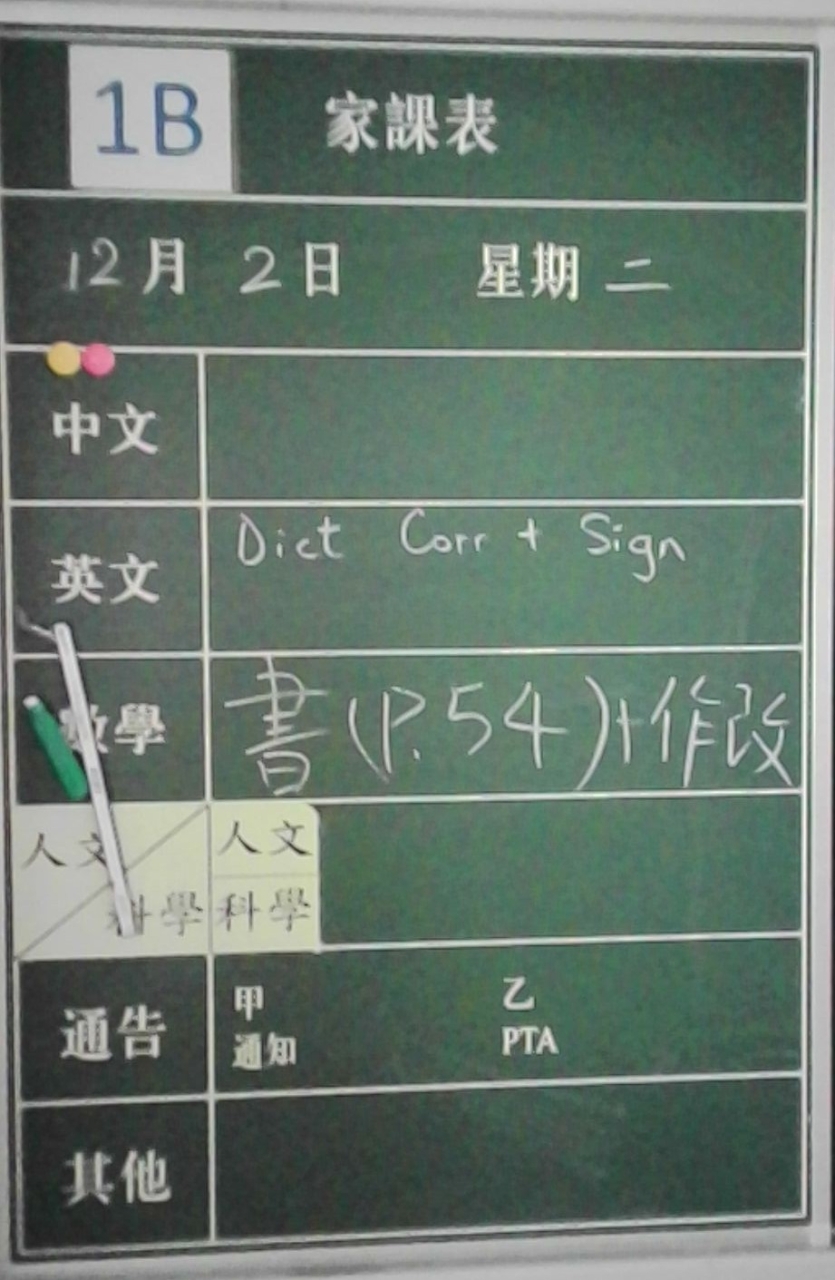 1B 家課表
12月 2日 星期二
中文
英文 Dict Corr + Sign
數學 書(P.54)+作改
人文 人文
科學 科學
通告 甲 乙
通知 PTA
其他